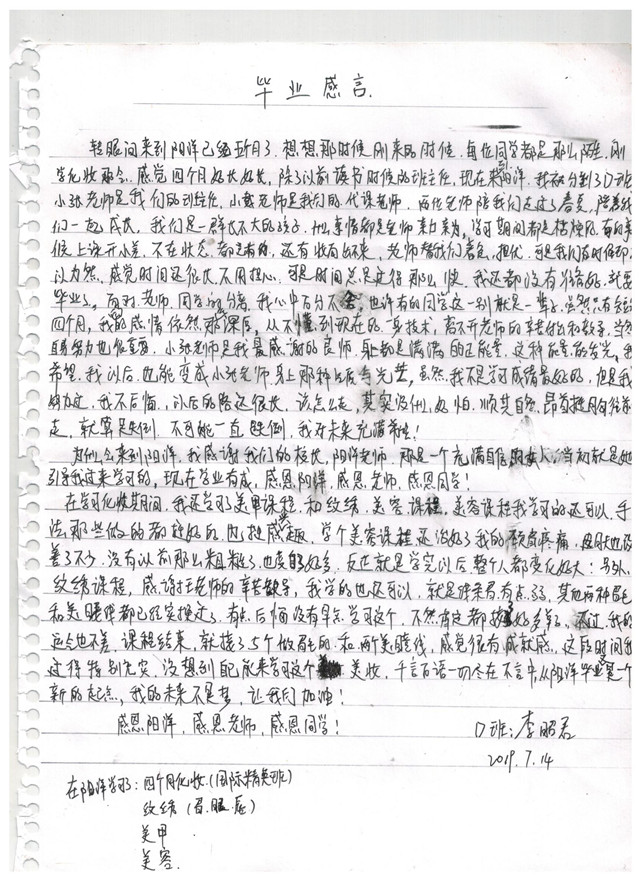 毕业感言.
转眼间来到阳洋已经五个月了.想想那时候刚来的时候.每位同学都是那么陌生,刚
学化妆那会.感觉四个月好长好长,除了以前读书时候的班主任,现在来阳洋.我被分到了D班
小张老师是我们的班主任,小 老师是我们的代课老师.两位老师陪我们走过了春夏,陪着我
们一起成长,我们是一群长不大的孩子.什么事情都是老师来操办,学习期间都是
候上课开小差.不在状态.都是有的,还有收尚出来,老师替我们着急,担忧.可是我们有时候却不
以为然,感觉时间还很长不用担心.可是时间总是过得那么快.我还都没有准备好.就要
毕业了,面对老师.同学的分离.我心中百万个不舍,也许有的同学这一别就是一辈子.虽然只有短短
四个月,我们的感情依然那么深厚,从不懂到现在的一身技术,离不开老师的辛苦付出和教导.当然
自身努力也很重要.小张老师是我最感谢的良师.身上都是满满的正能量.这种能量的发光,我
希望.我以后也能变成小张老师身上那种 光芒,虽然我不是学习成绩最好的,但是我
努力过.我不后悔.以后的路还很长.该怎么走,其实没什么好怕.顺其自然.昂首挺胸往前
走,就算是跌倒.不可能一直跌倒,我对未来充满希望!
为什么会来到阳洋.我感谢我们的校长,阳洋老师.那是一个充满自信的女人,当初就是她
引导我过来学习的,现在学业有成,感恩阳洋,感恩老师,感恩同学!
在学习化妆期间.我还学了美甲课程.和纹绣.美容.课程.美容课程我学习的还可以.手
法那些做的都挺好的.也挺感兴趣.学个美容课程还治好了我的颈肩疼痛,皮肤也改
善了不少.没有以前那么粗糙了.也变白好多.反正就是学完以后整个人都变化好大;另外.
纹绣课程,感谢汪老师的辛苦教导,我学的也还可以.就是绣唇有点弱,其他两种眉毛
和美瞳线都已经实操过了.有点后悔没有早点学习这个.不然肯定都接了好多单了.不过.我的
运气也不差,课程结束,就接了5个做眉毛的和两个美瞳线,感觉很有成就感,这段时间我
过得特别充实.没想到自己能来学习这个美妆,千言万语一切尽在不言中,从阳洋毕业是一个
新的起点,我的未来不是梦,让我们加油!
感恩阳洋,感恩老师,感恩同学!
D班:李昭君
2019.7.14
在阳洋学习了:四个月化妆.(国际精英班)
纹绣(眉.眼.唇)
美甲
美容.